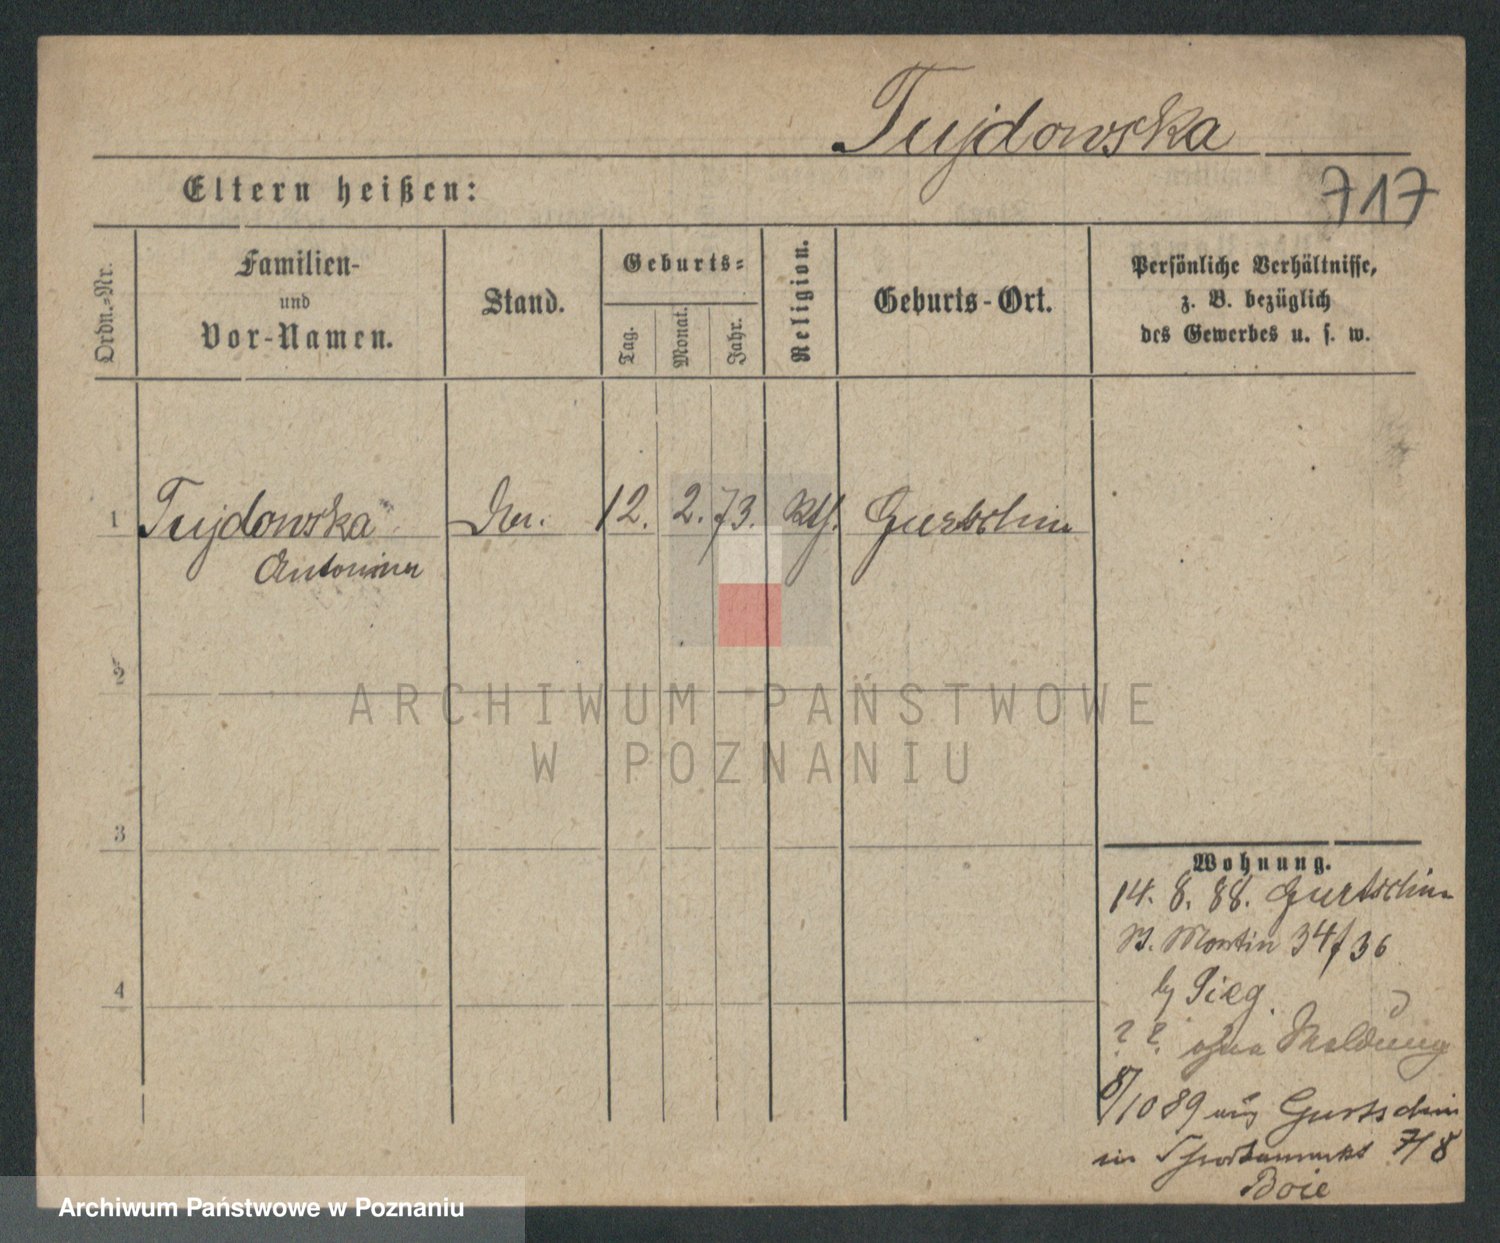 Tujdowska
Eltern heißen:
717
Ordn.-Nr.
Familien-
und
Vor-Namen.
Stand.
Geburts-
Tag.
Monat.
Jahr.
Religion.
Geburts-Ort.
Persönliche Verhältnisse,
z. B. bezüglich
des Gewerbes u. s. w.
1 Tujdowska 12. 2. 73. kth. Gurtschin
Antonina
2
3
4
Wohnung.
14. 8. 88. Gurtschin
St. Martin 34/36
by
? ? ohne Meldung
8/10 89 aus Gurtschin
in 7/8
Boie
ARCHIWUM PAŃSTWOWE
W POZNANIU
Archiwum Państwowe w Poznaniu